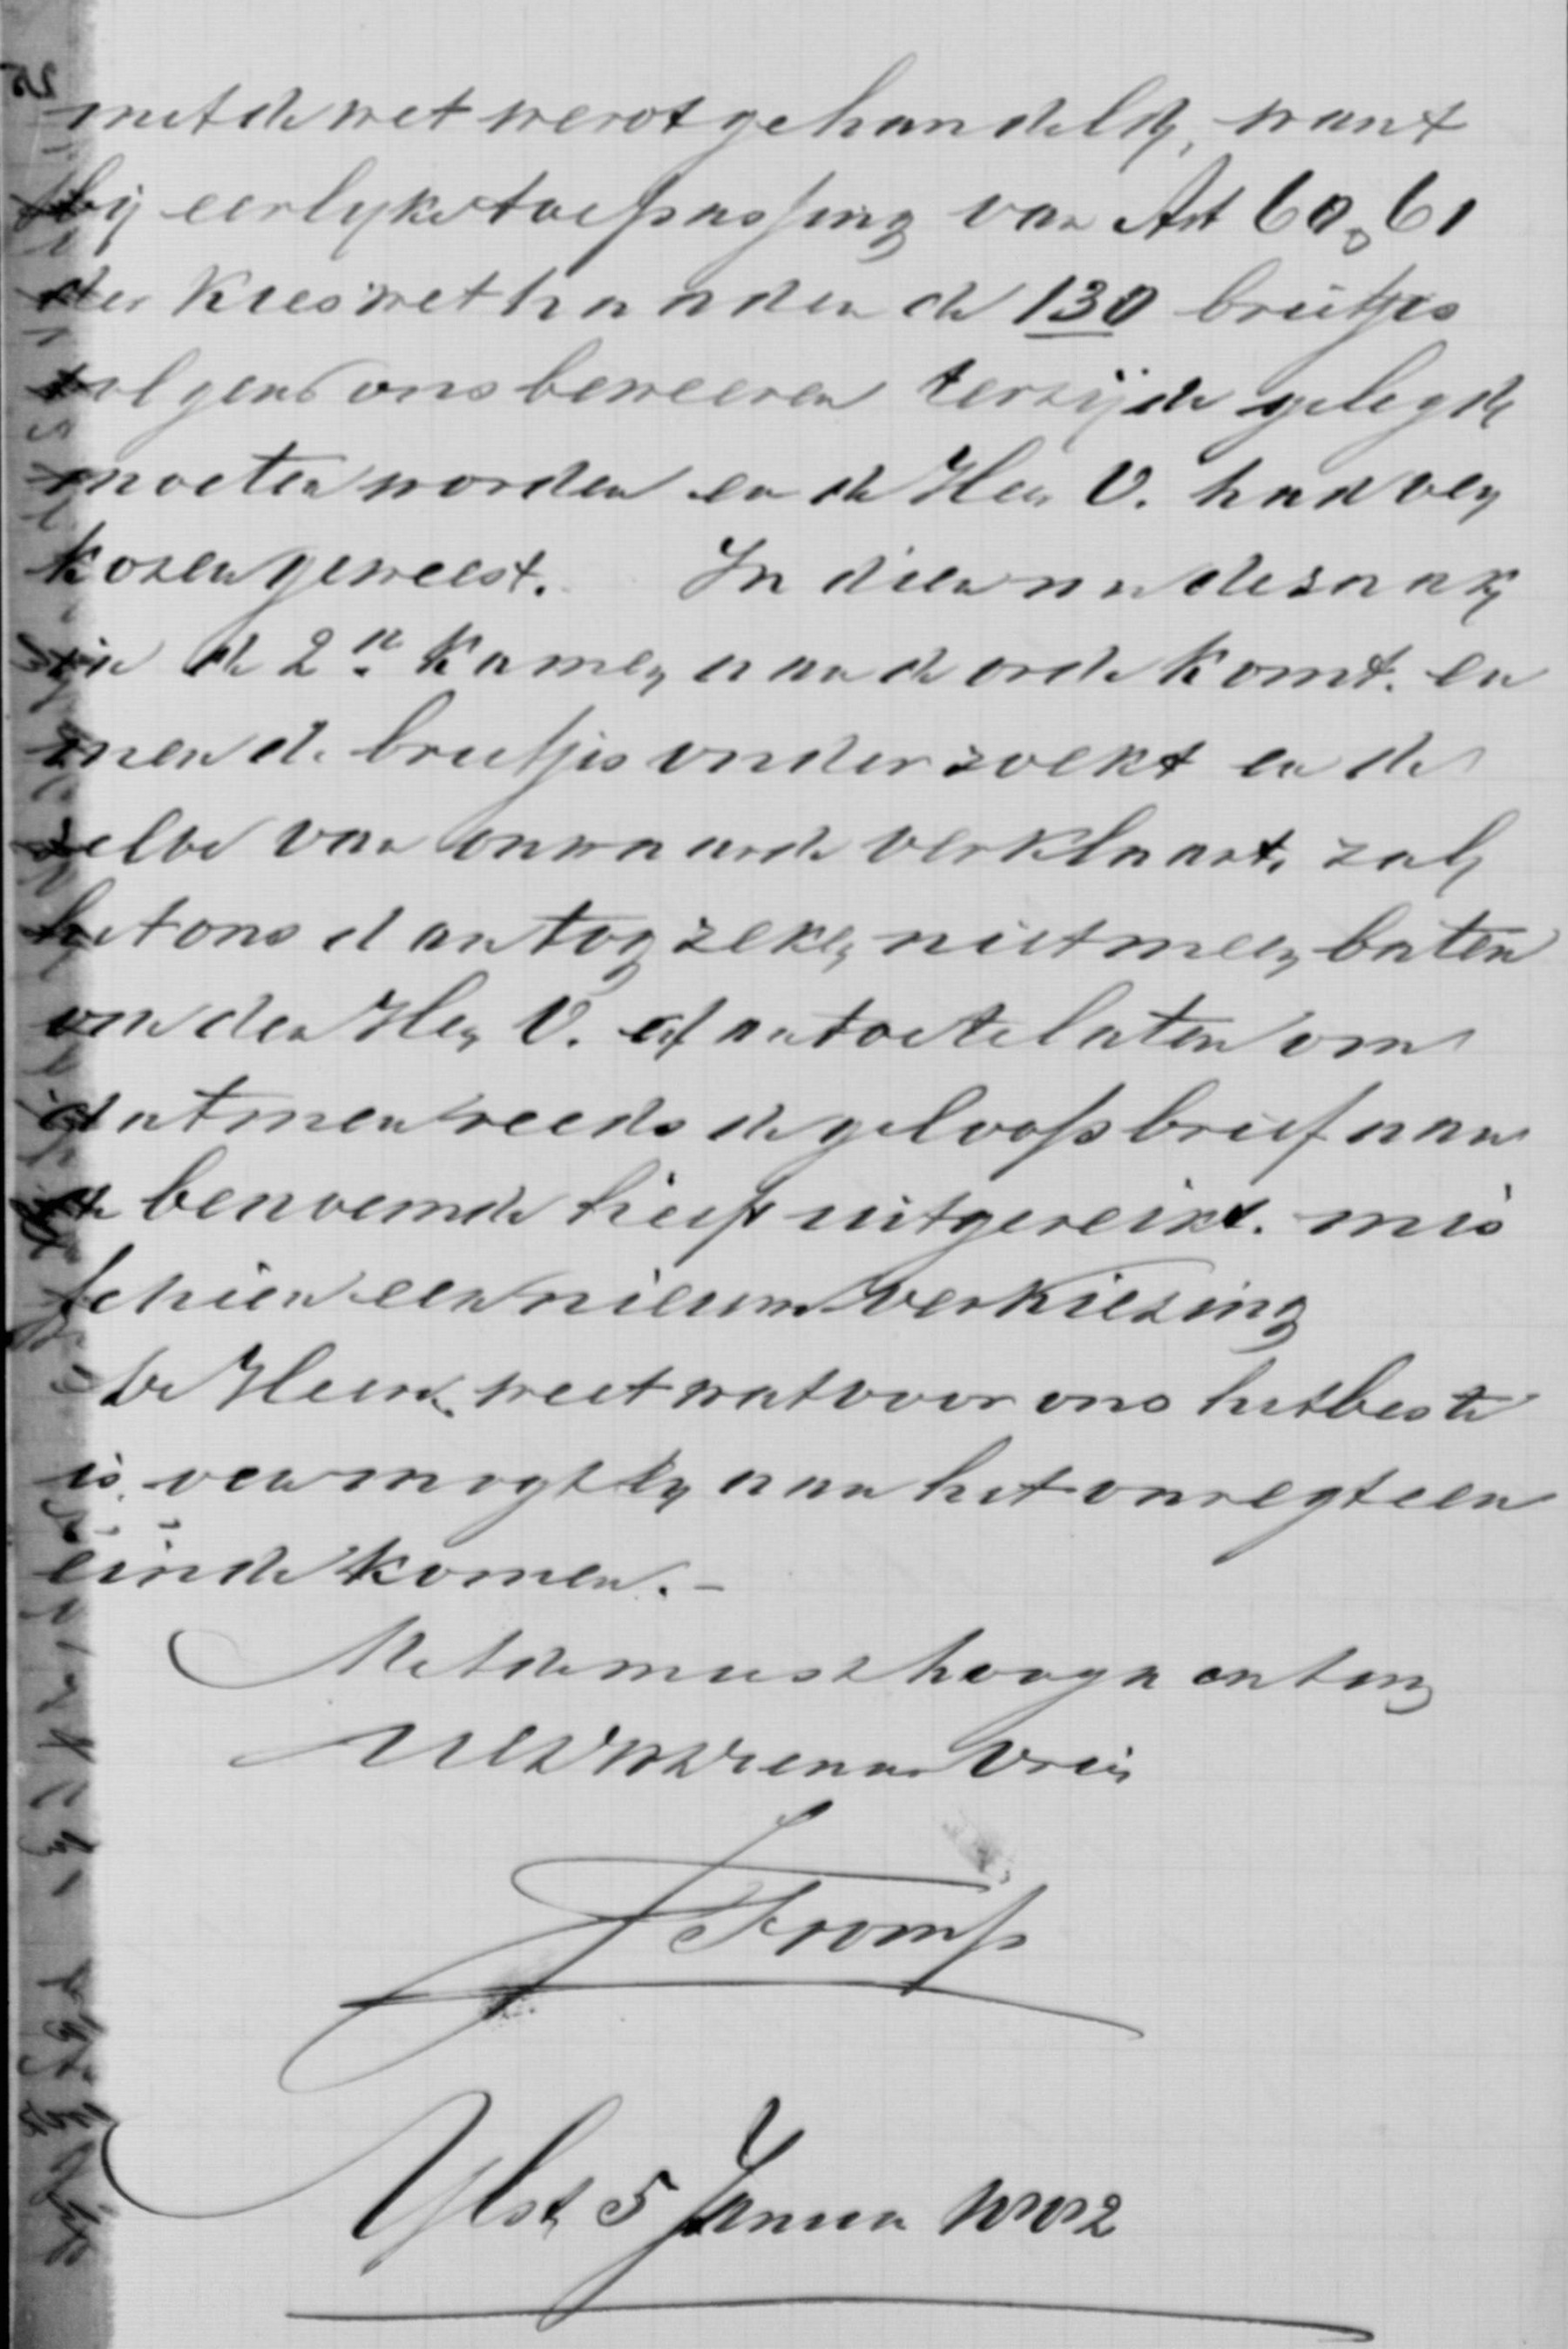 met de wet werdt gehandeld, want
bij eerlyke toepassing van Art 60, 61
der Kieswet hadden de 130 briefjes
volgens ons beweeren terzijde gelegd
moeten worden en de Heer V. had ver
kozen geweest. In dien nu de zaak
in de 2e Kamer aan de orde komt. en
men de briefjes onderzoekt en de
zelve van onwaarde verklaart, zal
het ons dan tog zeker niet meer baten
om den Heer V. dan toe te laten om
dat men reeds de geloofsbrief aan
de benoemde heeft uitgereikt. mis
schien een nieuwe verkiezing
De Heere weet wat voor ons het beste
is, mogt er aan het onregt een
einde komen. –
Met de meeste hoogachting
Vriend
Tromp
Ylst 5 Janua 1882